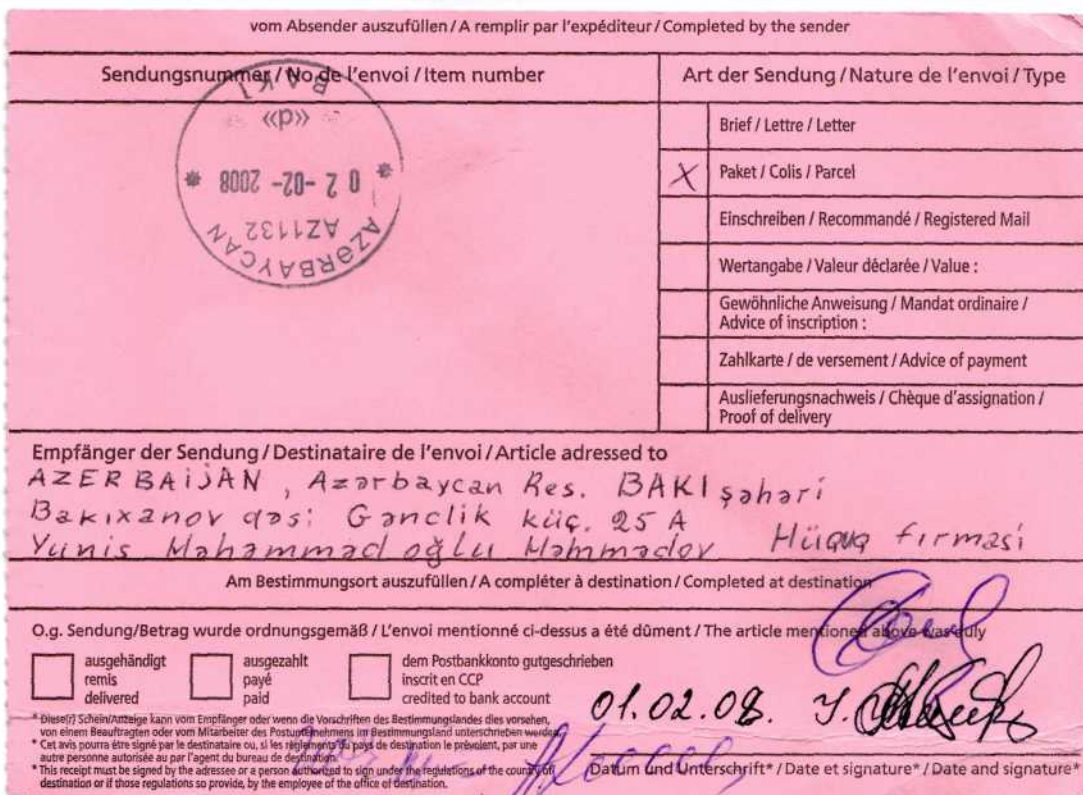 vom Absender auszufüllen / A remplir par l'expéditeur / Completed by the sender
Sendungsnummer / No de l'envoi / Item number
BAKI
«d»
02-02-2008
AZ1132
AZƏRBAYCAN
Art der Sendung / Nature de l'envoi / Type
Brief / Lettre / Letter
X Paket / Colis / Parcel
Einschreiben / Recommandé / Registered Mail
Wertangabe / Valeur déclarée / Value :
Gewöhnliche Anweisung / Mandat ordinaire /
Advice of inscription :
Zahlkarte / de versement / Advice of payment
Auslieferungsnachweis / Chèque d'assignation /
Proof of delivery
Empfänger der Sendung / Destinataire de l'envoi / Article adressed to
AZERBAIJAN, Azərbaycan Res. BAKI şəhəri
Bakıxanov qəsi Gənclik küç. 25 A
Yunis Məhəmməd oğlu Məmmədov Hüquq firmasi
Am Bestimmungsort auszufüllen / A compléter à destination / Completed at destination
O.g. Sendung/Betrag wurde ordnungsgemäß / L'envoi mentionné ci-dessus a été dûment / The article mentioned above was duly
ausgehändigt
remis
delivered
ausgezahlt
payé
paid
dem Postbankkonto gutgeschrieben
inscrit en CCP
credited to bank account
* Diese(r) Schein/Anzeige kann vom Empfänger oder wenn die Vorschriften des Bestimmungslandes dies vorsehen,
von einem Beauftragten oder vom Mitarbeiter des Postunternehmens im Bestimmungsland unterschrieben werden.
* Cet avis pourra être signé par le destinataire ou, si les règlements du pays de destination le prévoient, par une
autre personne autorisée au par l'agent du bureau de destination.
* This receipt must be signed by the adressee or a person authorized to sign under the regulations of the country of
destination or if those regulations so provide, by the employee of the office of destination.
01.02.08.
Datum und Unterschrift* / Date et signature* / Date and signature*